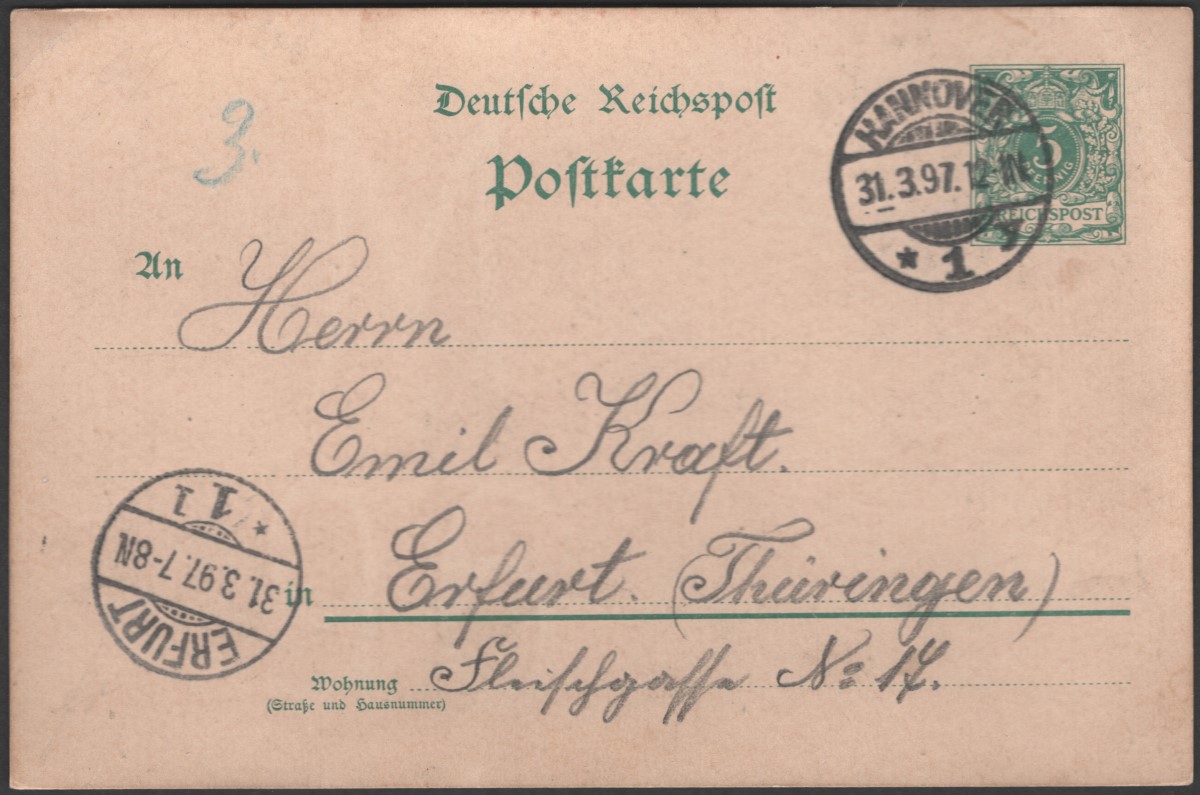 Deutsche Reichspost
Postkarte
3.
HANNOVER
31.3.97.12-1N
* 1 y
5
PFENNIG
REICHSPOST
An Herrn
Emil Kraft.
in Erfurt. (Thüringen)
Wohnung Fleischgasse No 17.
(Straße und Hausnummer)
ERFURT
31.3.97.7-8N
* 1 1